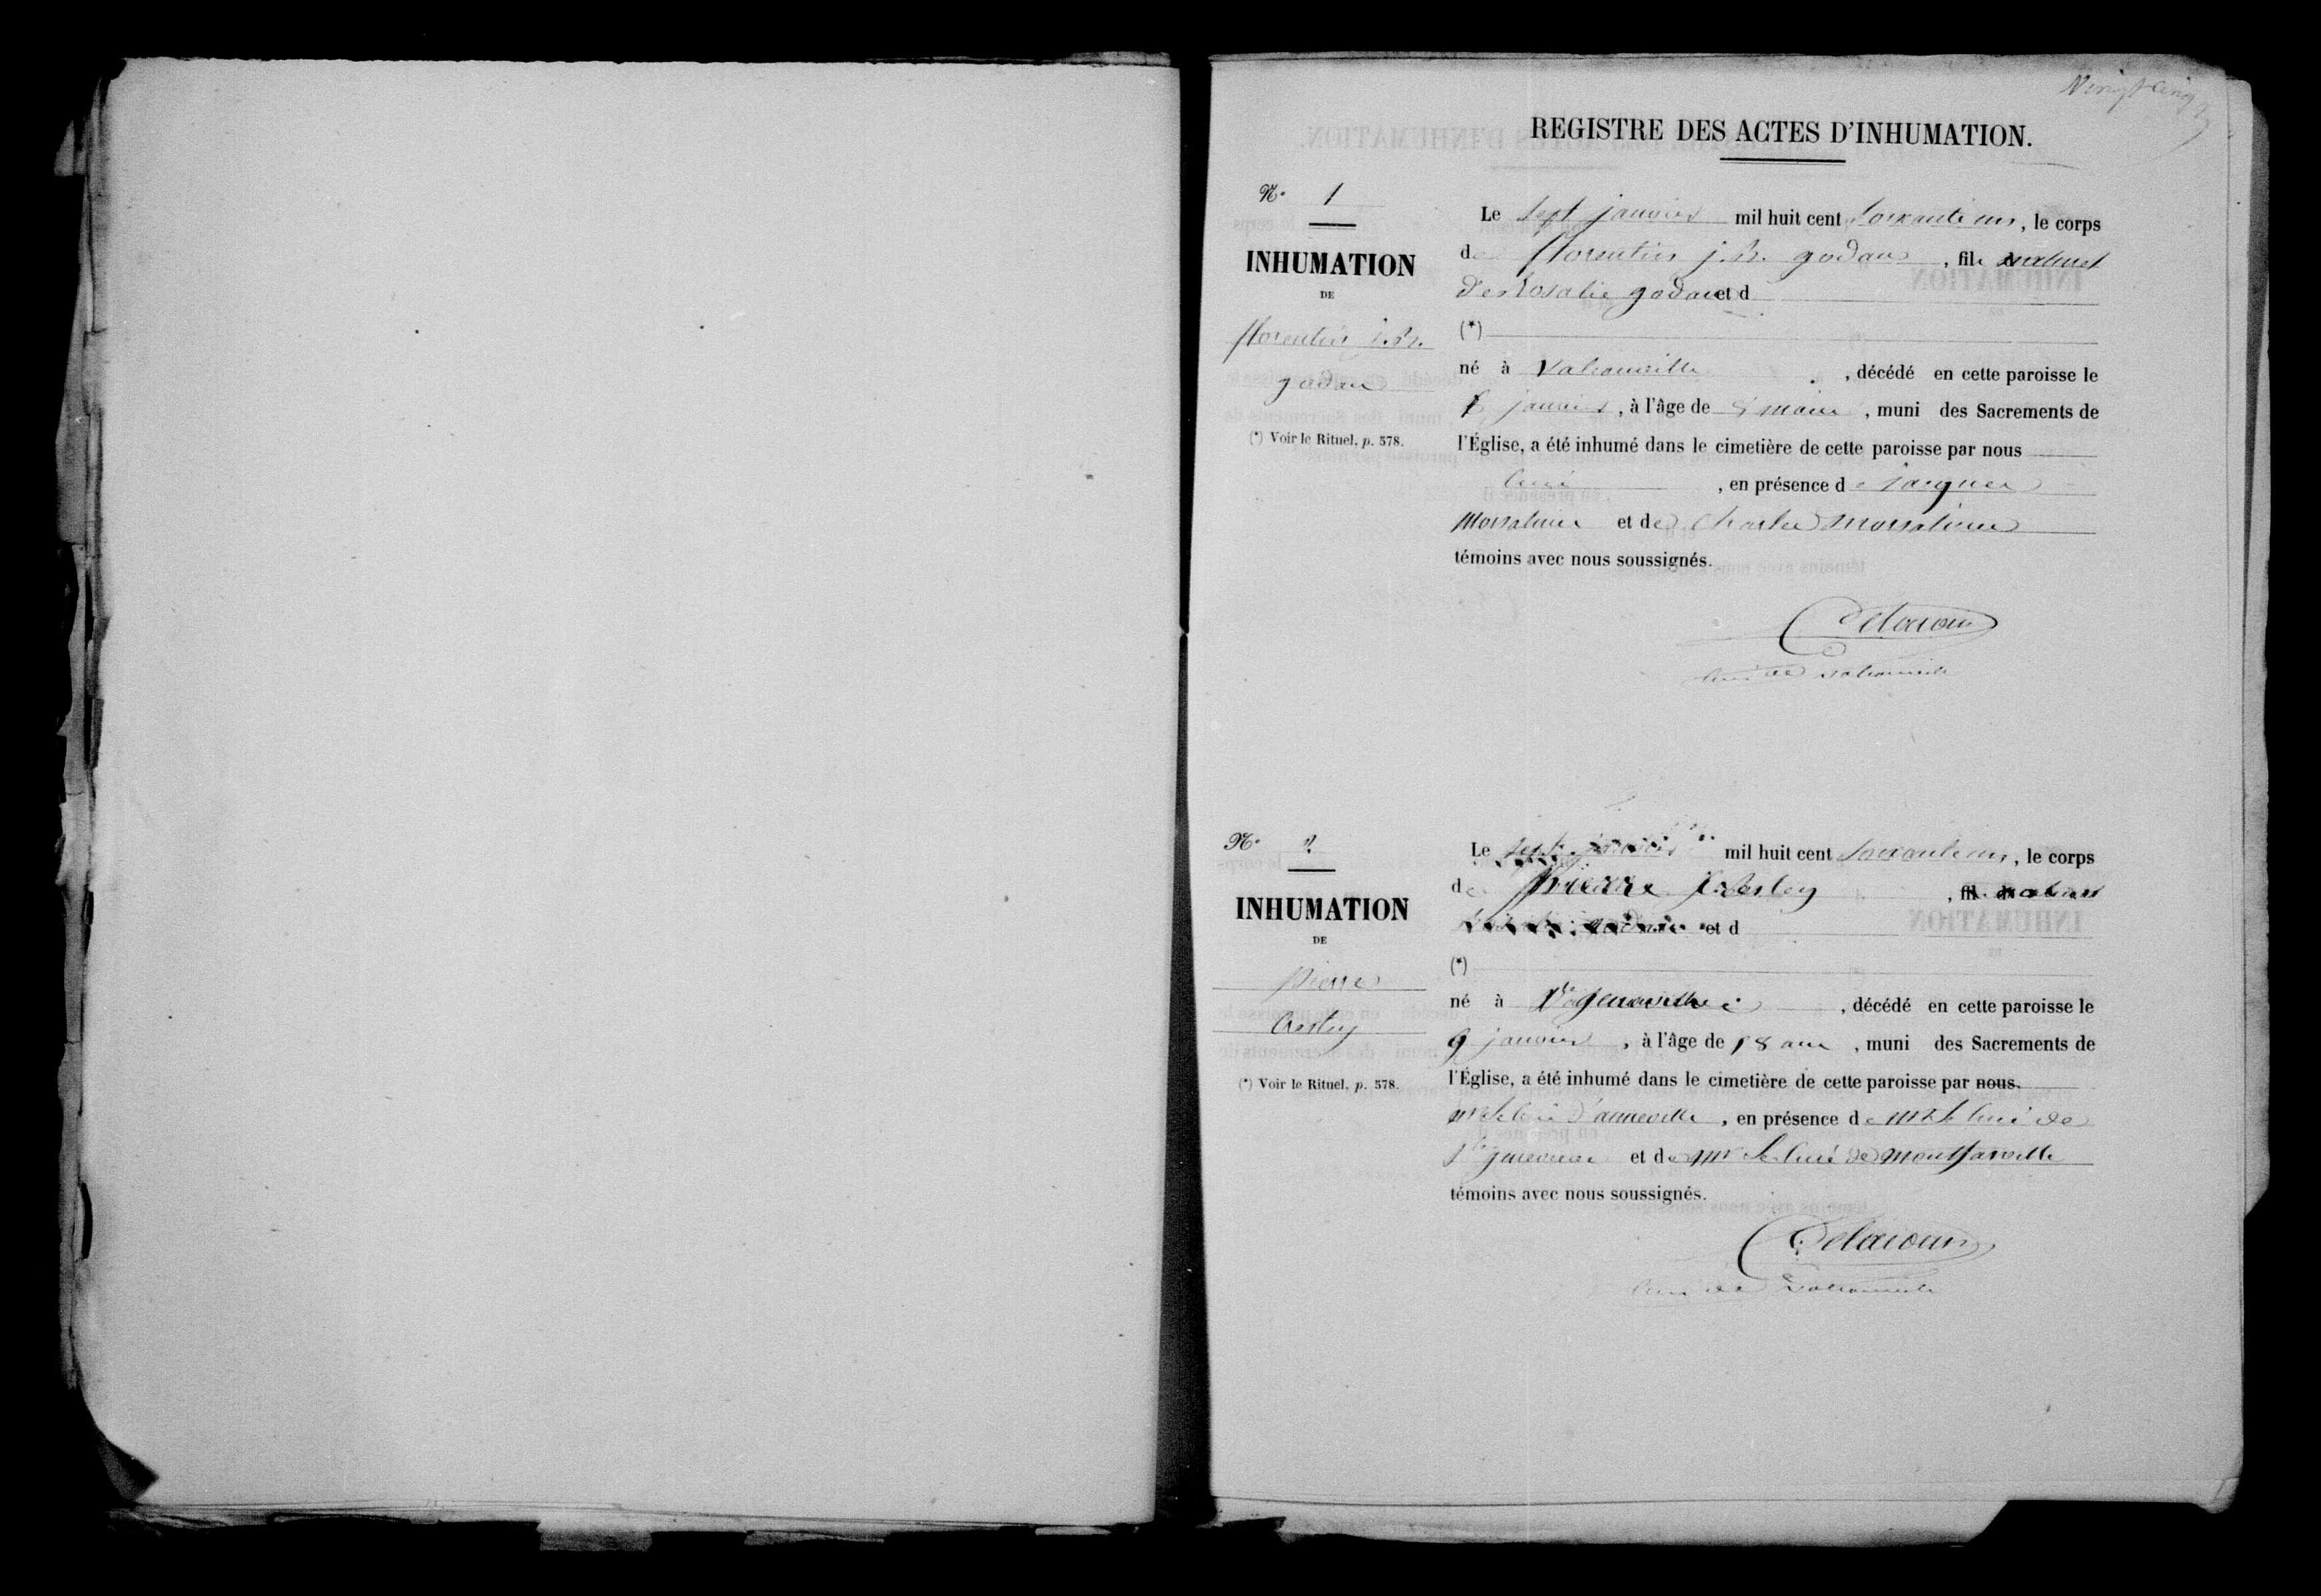 Vingt cinq
REGISTRE DES ACTES D'INHUMATION.
N° 1
INHUMATION
DE
florentin j. b.
godan
(*) Voir le Rituel, p. 578.
Le sept janvier mil huit cent soixante un, le corps
de florentin j. b. godan, fils naturel
de Rosalie godan et d
(*)
né à Valcanville, décédé en cette paroisse le
janvier, à l'âge de mois, muni des Sacrements de
l'Église, a été inhumé dans le cimetière de cette paroisse par nous
Curé, en présence de jacques
Morsalines et de Charles Morsalines
témoins avec nous soussignés.
Curé de Valcanville
N° 2
INHUMATION
DE
Pierre
Crestey
(*) Voir le Rituel, p. 578.
Le sept janvier mil huit cent soixante un, le corps
de Pierre Crestey, fils naturel
et d
(*)
né à, décédé en cette paroisse le
9 janvier, à l'âge de 18 ans, muni des Sacrements de
l'Église, a été inhumé dans le cimetière de cette paroisse par nous
mr le Curé d'anneville, en présence de mr le Curé de
Ste geneviève et de mr le Curé de montfarville
témoins avec nous soussignés.
Curé de Valcanville